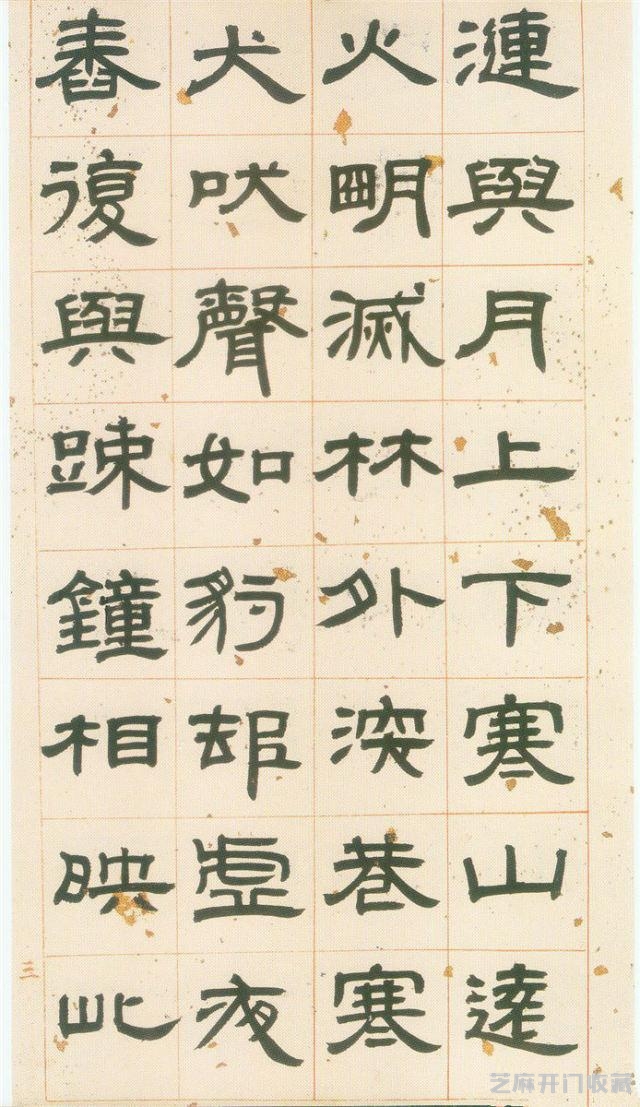 漣與月上下寒山遠
火朙滅林外深巷寒
犬吠聲如豹邨虛夜
舂復與踈鐘相映此
三
芝麻开门收藏